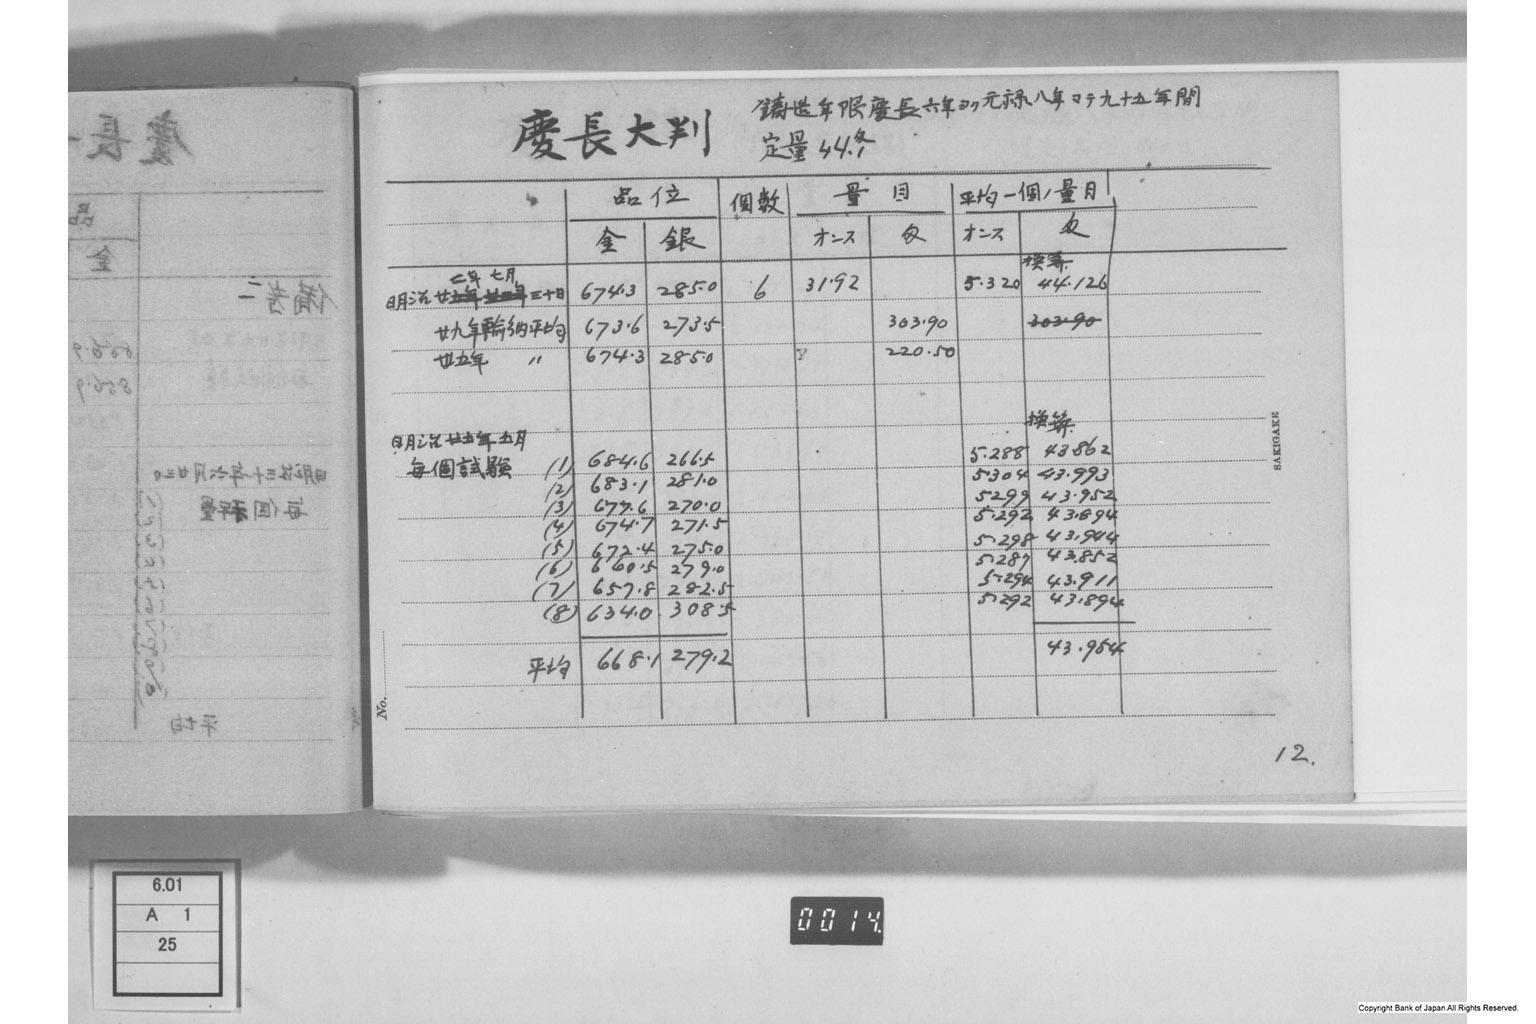 慶長大判
鋳造年限慶長六年ヨリ元禄八年マテ九十五年間
定量 44.1匁
品位 個数 量目 平均一個ノ量目
金 銀 オンス 匁 オンス 匁
換算
二年七月
明治廿五年廿四年三十日 674.3 285.0 6 31.92 5.320 44.126
廿九年輸納平均 673.6 273.5 303.90 303.90
廿五年 〃 674.3 285.0 220.50
換算
明治廿五年五月
毎個試験 (1) 684.6 266.5 5.288 43.862
(2) 683.1 281.0 5.304 43.993
(3) 677.6 270.0 5.299 43.952
(4) 674.7 271.5 5.292 43.894
(5) 672.4 275.0 5.298 43.944
(6) 660.5 279.0 5.287 43.852
(7) 657.8 282.5 5.294 43.911
(8) 634.0 308.5 5.292 43.894
平均 668.1 279.2 43.954
No.
SAKIGAKE
12.
6.01
A 1
25
0014
Copyright Bank of Japan All Rights Reserved.